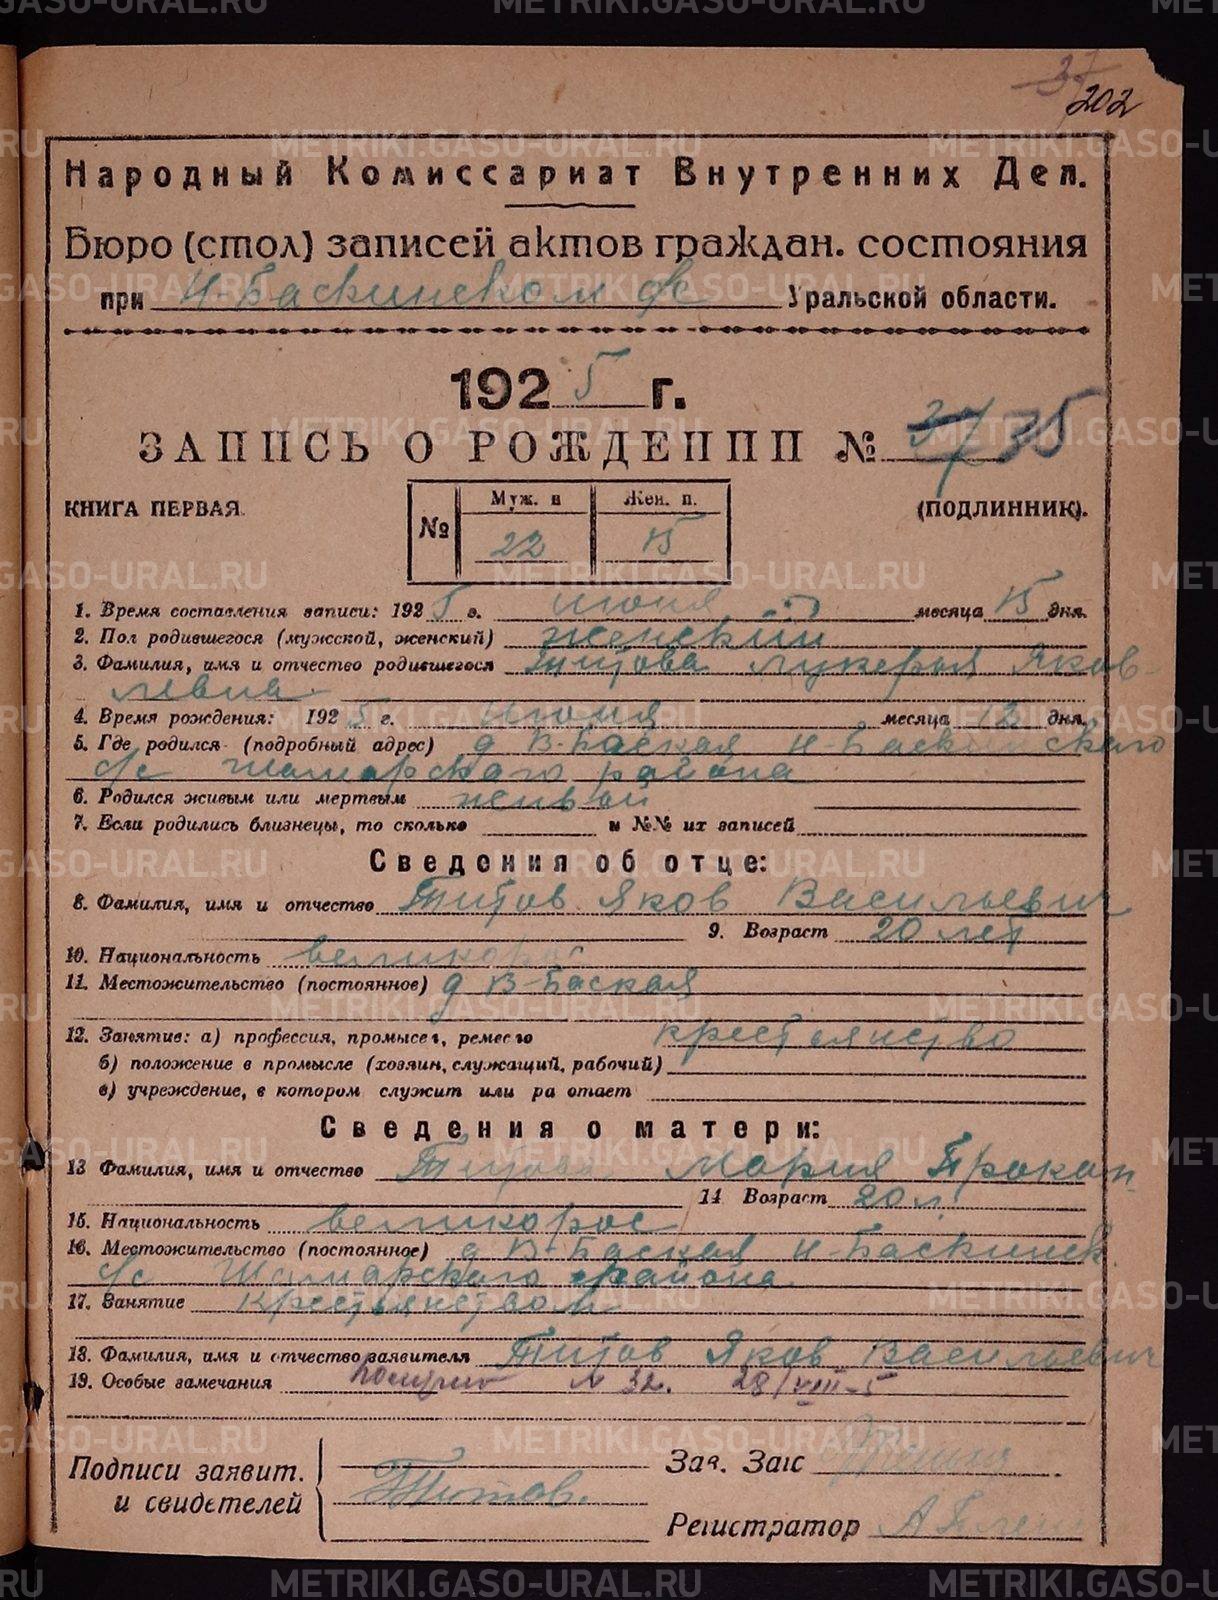 37
202
Народный Комиссариат Внутренних Дел.
Бюро (стол) записей актов граждан. состояния
при Н-Баскинском с/с Уральской области.
1925 г.
ЗАПИСЬ О РОЖДЕНИИ № 37 35
КНИГА ПЕРВАЯ. (ПОДЛИННИК).
№ Муж. п Жен. п.
22 15
1. Время составления записи: 1925 г. июня месяца 15 дня.
2. Пол родившегося (мужской, женский) женский
3. Фамилия, имя и отчество родившегося Титова Лукерья Яков-
левна
4. Время рождения: 1925 г. июня месяца 12 дня.
5. Где родился (подробный адрес) д В-Баская Н-Баскинского
с/с Шамарского района
6. Родился живым или мертвым живой
7. Если родились близнецы, то сколько и №№ их записей
Сведения об отце:
8. Фамилия, имя и отчество Титов Яков Васильевич
9. Возраст 20 лет
10. Национальность великорос
11. Местожительство (постоянное) д В-Баская
12. Занятие: а) профессия, промысел, ремесло крестьянство
б) положение в промысле (хозяин, служащий, рабочий)
в) учреждение, в котором служит или ра отает
Сведения о матери:
13 Фамилия, имя и отчество Титова Мария Прокоп
14 Возраст 20 л.
15. Национальность великорос
16. Местожительство (постоянное) д В-Баская Н-Баскинск.
с/с Шамарского района
17. Занятие крестьянством
18. Фамилия, имя и отчество заявителя Титов Яков Васильевич
19. Особые замечания № 32. 28/VIII-5
Подписи заявит. Зав. Загс
и свидетелей Титов.
Регистратор
METRIKI.GASO-URAL.RU